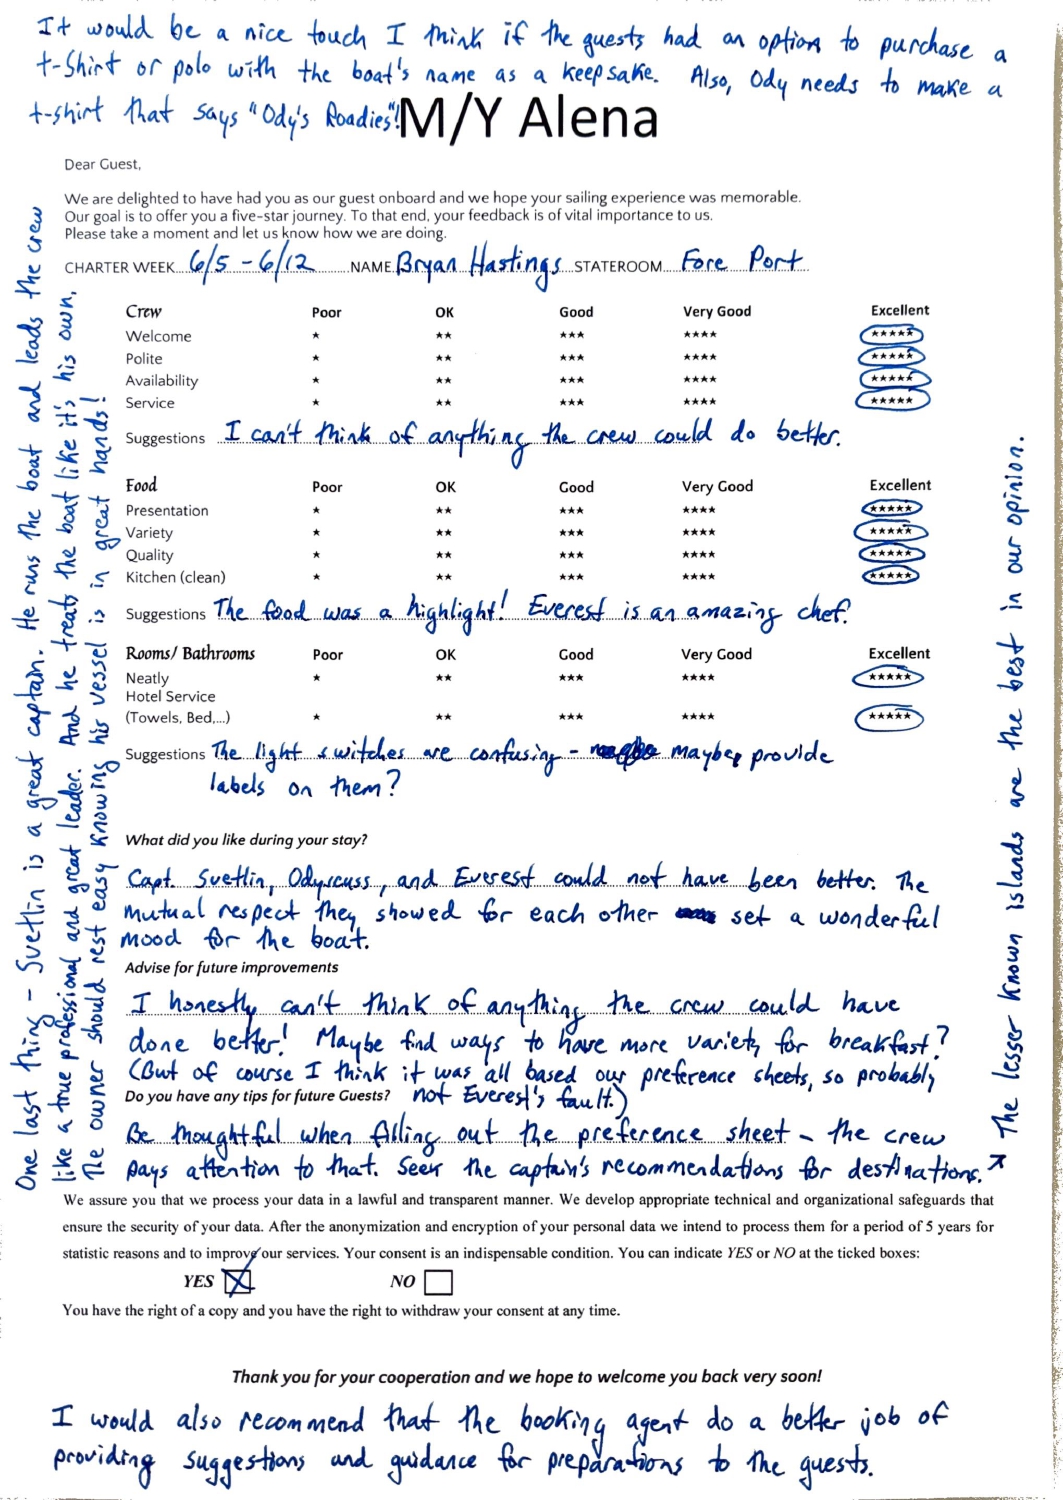 It would be a nice touch I think if the guests had an option to purchase a
t-shirt or polo with the boat's name as a keepsake. Also, Ody needs to make a
t-shirt that says "Ody's Roadies"!
M/Y Alena
Dear Guest,
We are delighted to have had you as our guest onboard and we hope your sailing experience was memorable.
Our goal is to offer you a five-star journey. To that end, your feedback is of vital importance to us.
Please take a moment and let us know how we are doing.
CHARTER WEEK 6/5 - 6/12 NAME Bryan Hastings STATEROOM Fore Port
Crew Poor OK Good Very Good Excellent
Welcome ★ ★★ ★★★ ★★★★ ★★★★★
Polite ★ ★★ ★★★ ★★★★ ★★★★★
Availability ★ ★★ ★★★ ★★★★ ★★★★★
Service ★ ★★ ★★★ ★★★★ ★★★★★
Suggestions I can't think of anything the crew could do better.
Food Poor OK Good Very Good Excellent
Presentation ★ ★★ ★★★ ★★★★ ★★★★★
Variety ★ ★★ ★★★ ★★★★ ★★★★★
Quality ★ ★★ ★★★ ★★★★ ★★★★★
Kitchen (clean) ★ ★★ ★★★ ★★★★ ★★★★★
Suggestions The food was a highlight! Everest is an amazing chef.
Rooms/ Bathrooms Poor OK Good Very Good Excellent
Neatly ★ ★★ ★★★ ★★★★ ★★★★★
Hotel Service
(Towels, Bed,...) ★ ★★ ★★★ ★★★★ ★★★★★
Suggestions The light switches are confusing - maybe provide
labels on them?
What did you like during your stay?
Capt. Svetlin, Odysseuss, and Everest could not have been better. The
mutual respect they showed for each other set a wonderful
mood for the boat.
Advise for future improvements
I honestly can't think of anything the crew could have
done better! Maybe find ways to have more variety for breakfast?
(But of course I think it was all based our preference sheets, so probably
not Everest's fault.)
Do you have any tips for future Guests?
Be thoughtful when filling out the preference sheet - the crew
pays attention to that. Seek the captain's recommendations for destinations. ↗
The lesser known islands are the best in our opinion.
One last thing - Svetlin is a great captain. He runs the boat and leads the crew
like a true professional and great leader. And he treats the boat like it's his own.
The owner should rest easy knowing his vessel is in great hands!
We assure you that we process your data in a lawful and transparent manner. We develop appropriate technical and organizational safeguards that
ensure the security of your data. After the anonymization and encryption of your personal data we intend to process them for a period of 5 years for
statistic reasons and to improve our services. Your consent is an indispensable condition. You can indicate YES or NO at the ticked boxes:
YES ☒ NO ☐
You have the right of a copy and you have the right to withdraw your consent at any time.
Thank you for your cooperation and we hope to welcome you back very soon!
I would also recommend that the booking agent do a better job of
providing suggestions and guidance for preparations to the guests.